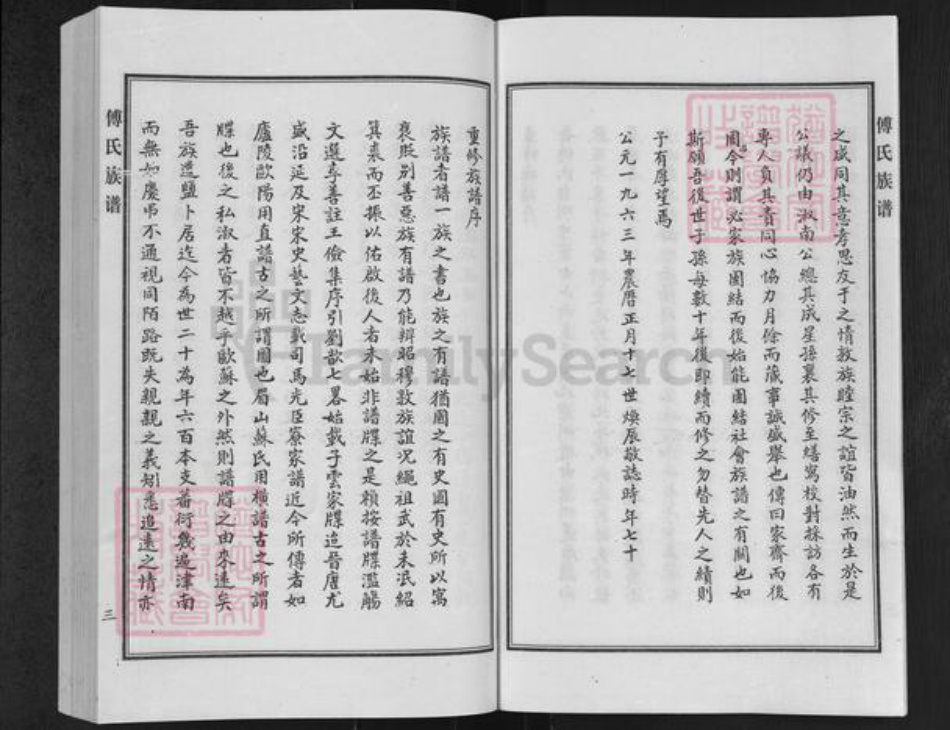 傅氏族谱
之感同其意孝思友于之情敦族睦宗之誼皆油然而生於是
公議仍由淑南公總其成星孫襄其修至繕寫校對採訪各有
專人負其責同心協力月餘而蕆事誠盛舉也傳曰家齊而後
國今則謂必家族團結而後始能團結社會族譜之有關也如
斯願吾後世子孫每數十年後即續而修之勿替先人之績則
予有厚望焉
公元一九六三年農曆正月十七世煥辰敬誌時年七十
重修族譜序
族譜者譜一族之書也族之有譜猶國之有史國有史所以寓
褒貶別善惡族有譜乃能辨昭穆敦族誼况繩祖武於未泯紹
箕裘而丕振以佑啟後人者未始非譜牒之是賴按譜牒濫觴
文選李善註王儉集序引劉歆七畧始載子雲家牒迨晉唐尤
盛沿延及宋宋史藝文志載司馬光臣寮家譜近今所傳者如
廬陵歐陽用直譜古之所謂圖也眉山蘇氏用橫譜古之所謂
牒也後之私淑者皆不越乎歐蘇之外然則譜牒之由來遠矣
吾族遷鹽卜居迄今為世二十為年六百本支蕃衍幾遍津南
而無如慶弔不通視同陌路既失親親之義矧悉追遠之情亦
傅氏族谱
三
FamilySearch